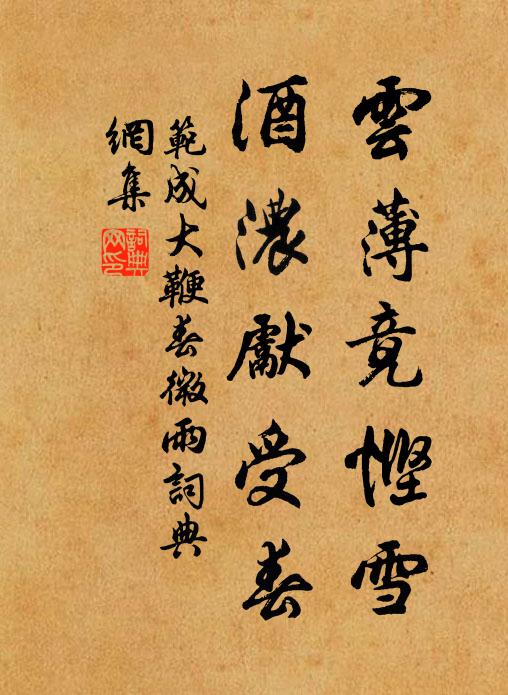 雲薄竟慳雪
酒濃獻受春
範成大鞭春微雨詞典
網集
詞典網印